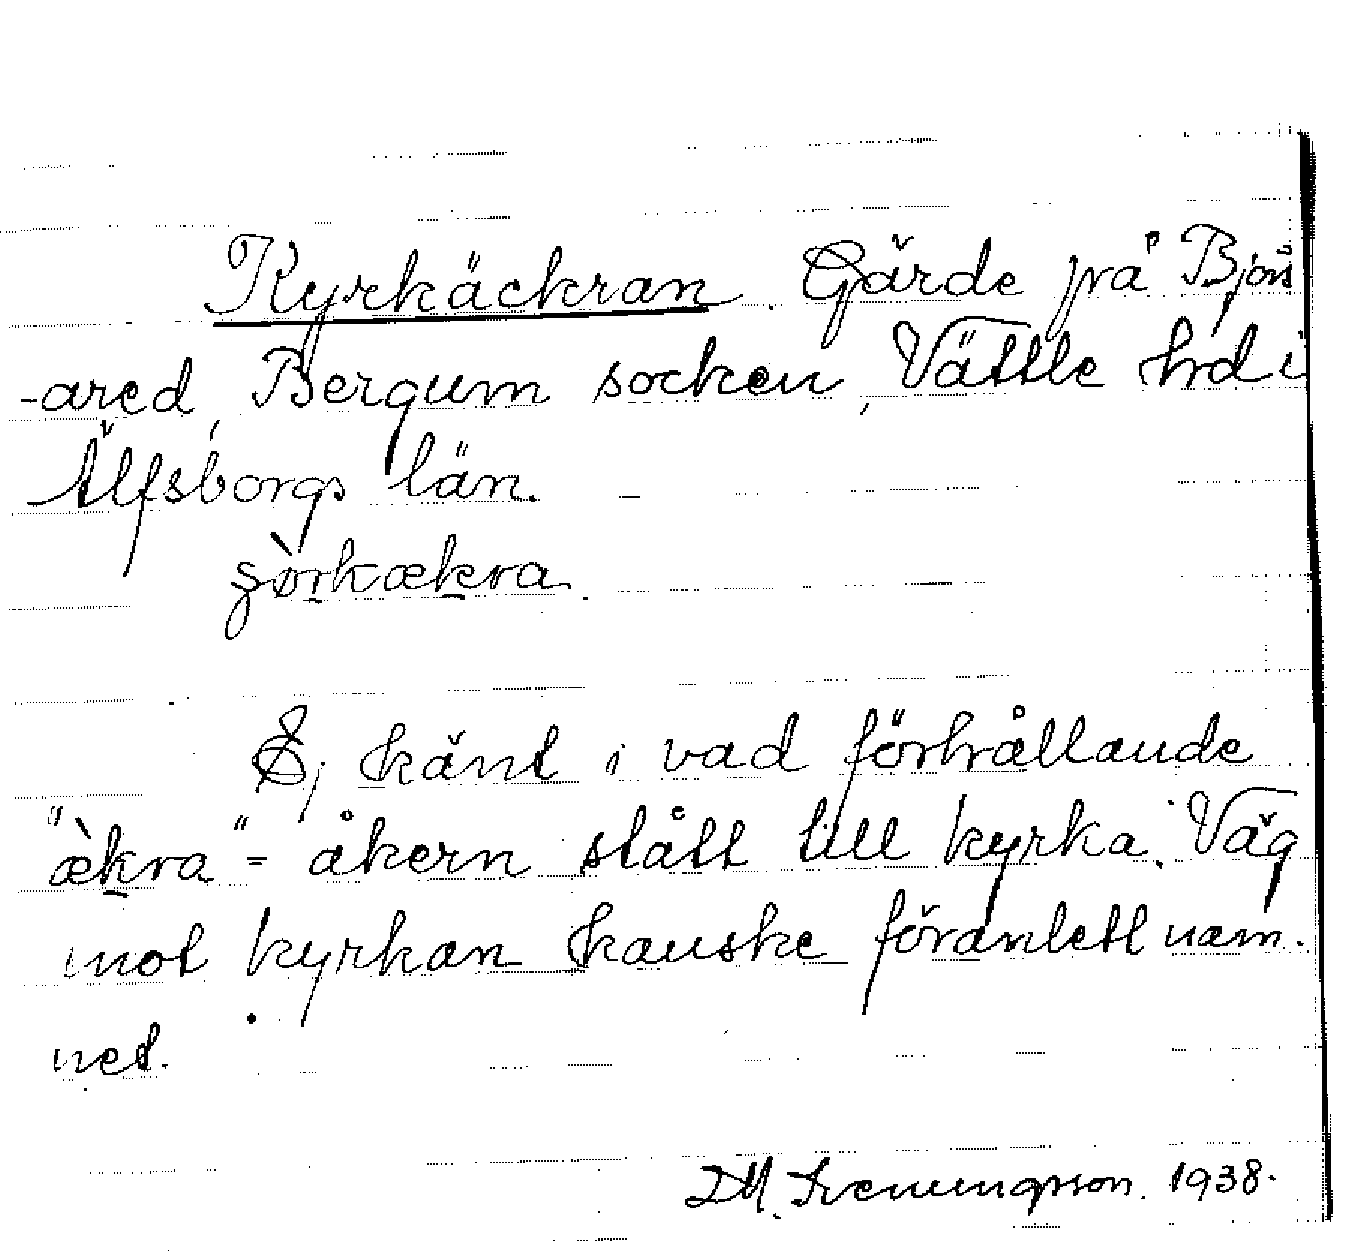 Kyrkäckran. Gärde på Björs
-ared, Bergum socken, Vättle hrd i
Älfsborgs län. –
ʂòrkækra.
Ej känt i vad förhållande
"ækra" = åkern stått till kyrka. Väg
mot kyrkan kanske föranlett nam-
net.
D.M. Svenungsson. 1938.